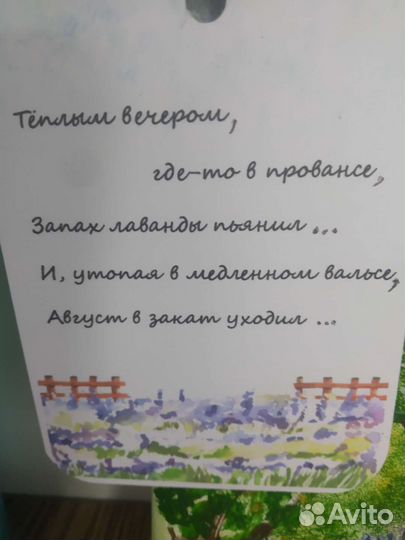 Тёплым вечером,
где-то в провансе,
Запах лаванды пьянил ...
И, утопая в медленном вальсе,
Август в закат уходил ...
Avito